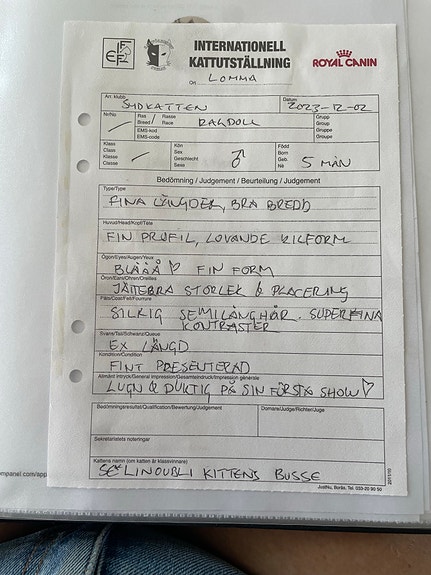 EFFE
INTERNATIONELL
KATTUTSTÄLLNING
ROYAL CANIN
Ort LOMMA
Arr. klubb
SYDKATTEN
Datum
2023-12-02
Nr/No
Ras Rasse
Breed / Race
EMS-kod
EMS-code
RAGDOLL
Grupp
Group
Gruppe
Groupe
Klass
Class
Klasse
Classe
Kön
Sex
Geschlecht
Sexe
♂
Född
Born
Geb.
Né
5 MÅN
Bedömning / Judgement / Beurteilung / Jugement
Type/Type
FINA LÄNGDER, BRA BREDD
Huvud/Head/Kopf/Tête
FIN PROFIL, LOVANDE KILFORM
Ögon/Eyes/Augen/Yeux
BLÅÅÅ ♡ FIN FORM
Öron/Ears/Ohren/Oreilles
JÄTTEBRA STORLEK & PLACERING
Päls/Coat/Fell/Fourrure
SILKIG SEMILÅNGHÅR. SUPERFINA
KONTRASTER
Svans/Tail/Schwanz/Queue
EX LÄNGD
Kondition/Condition
FINT PRESENTERAD
Allmänt intryck/General impression/Gesamteindruck/Impression générale
LUGN & DUKTIG PÅ SIN FÖRSTA SHOW ♡
Bedömningsresultat/Qualification/Bewertung/Judgement
Domare/Judge/Richter/Juge
Sekretariatets noteringar
Kattens namn (om katten är klassvinnare)
SE* LINOUBLI KITTENS BUSSE
JustNu, Borås. Tel. 033-20 90 50
mpanel.com/app